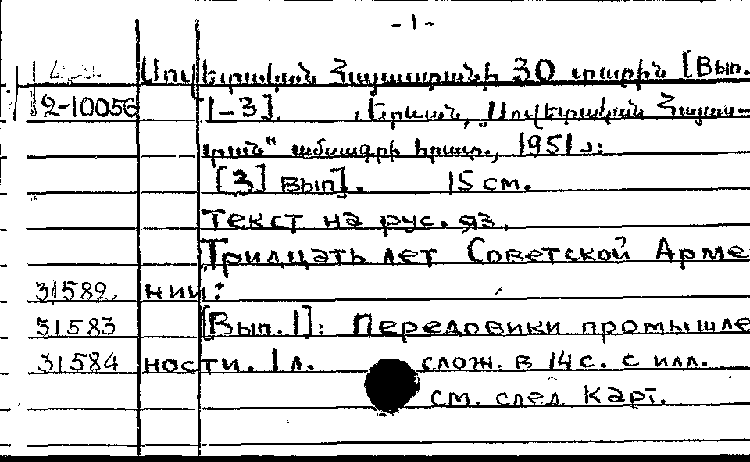 -1-
Սովետական Հայաստանի 30 տարին [Вып.
12-10056 1-3]. Երևան, "Սովետական Հայաս-
տան" ամսագրի հրատ., 1951թ:
[3] Вып]. 15 см.
Текст на рус. яз.
Тридцать лет Советской Арме
31589. нии:
31583 [Вып. 1]: Передовики промышле
31584 ности. 1 л. слож. в 14 с. с илл.
см. след карт.